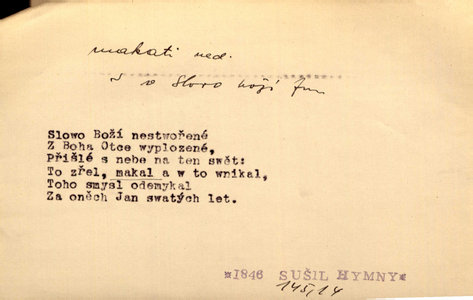 makati ned.
Slovo boží
Slowo Boží nestwořené
Z Boha Otce wyplozené,
Přišlé s nebe na ten swět:
To zřel, makal a w to wnikal,
Toho smysl odemykal
Za oněch Jan swatých let.
*1846 SUŠIL HYMNY*
145/14